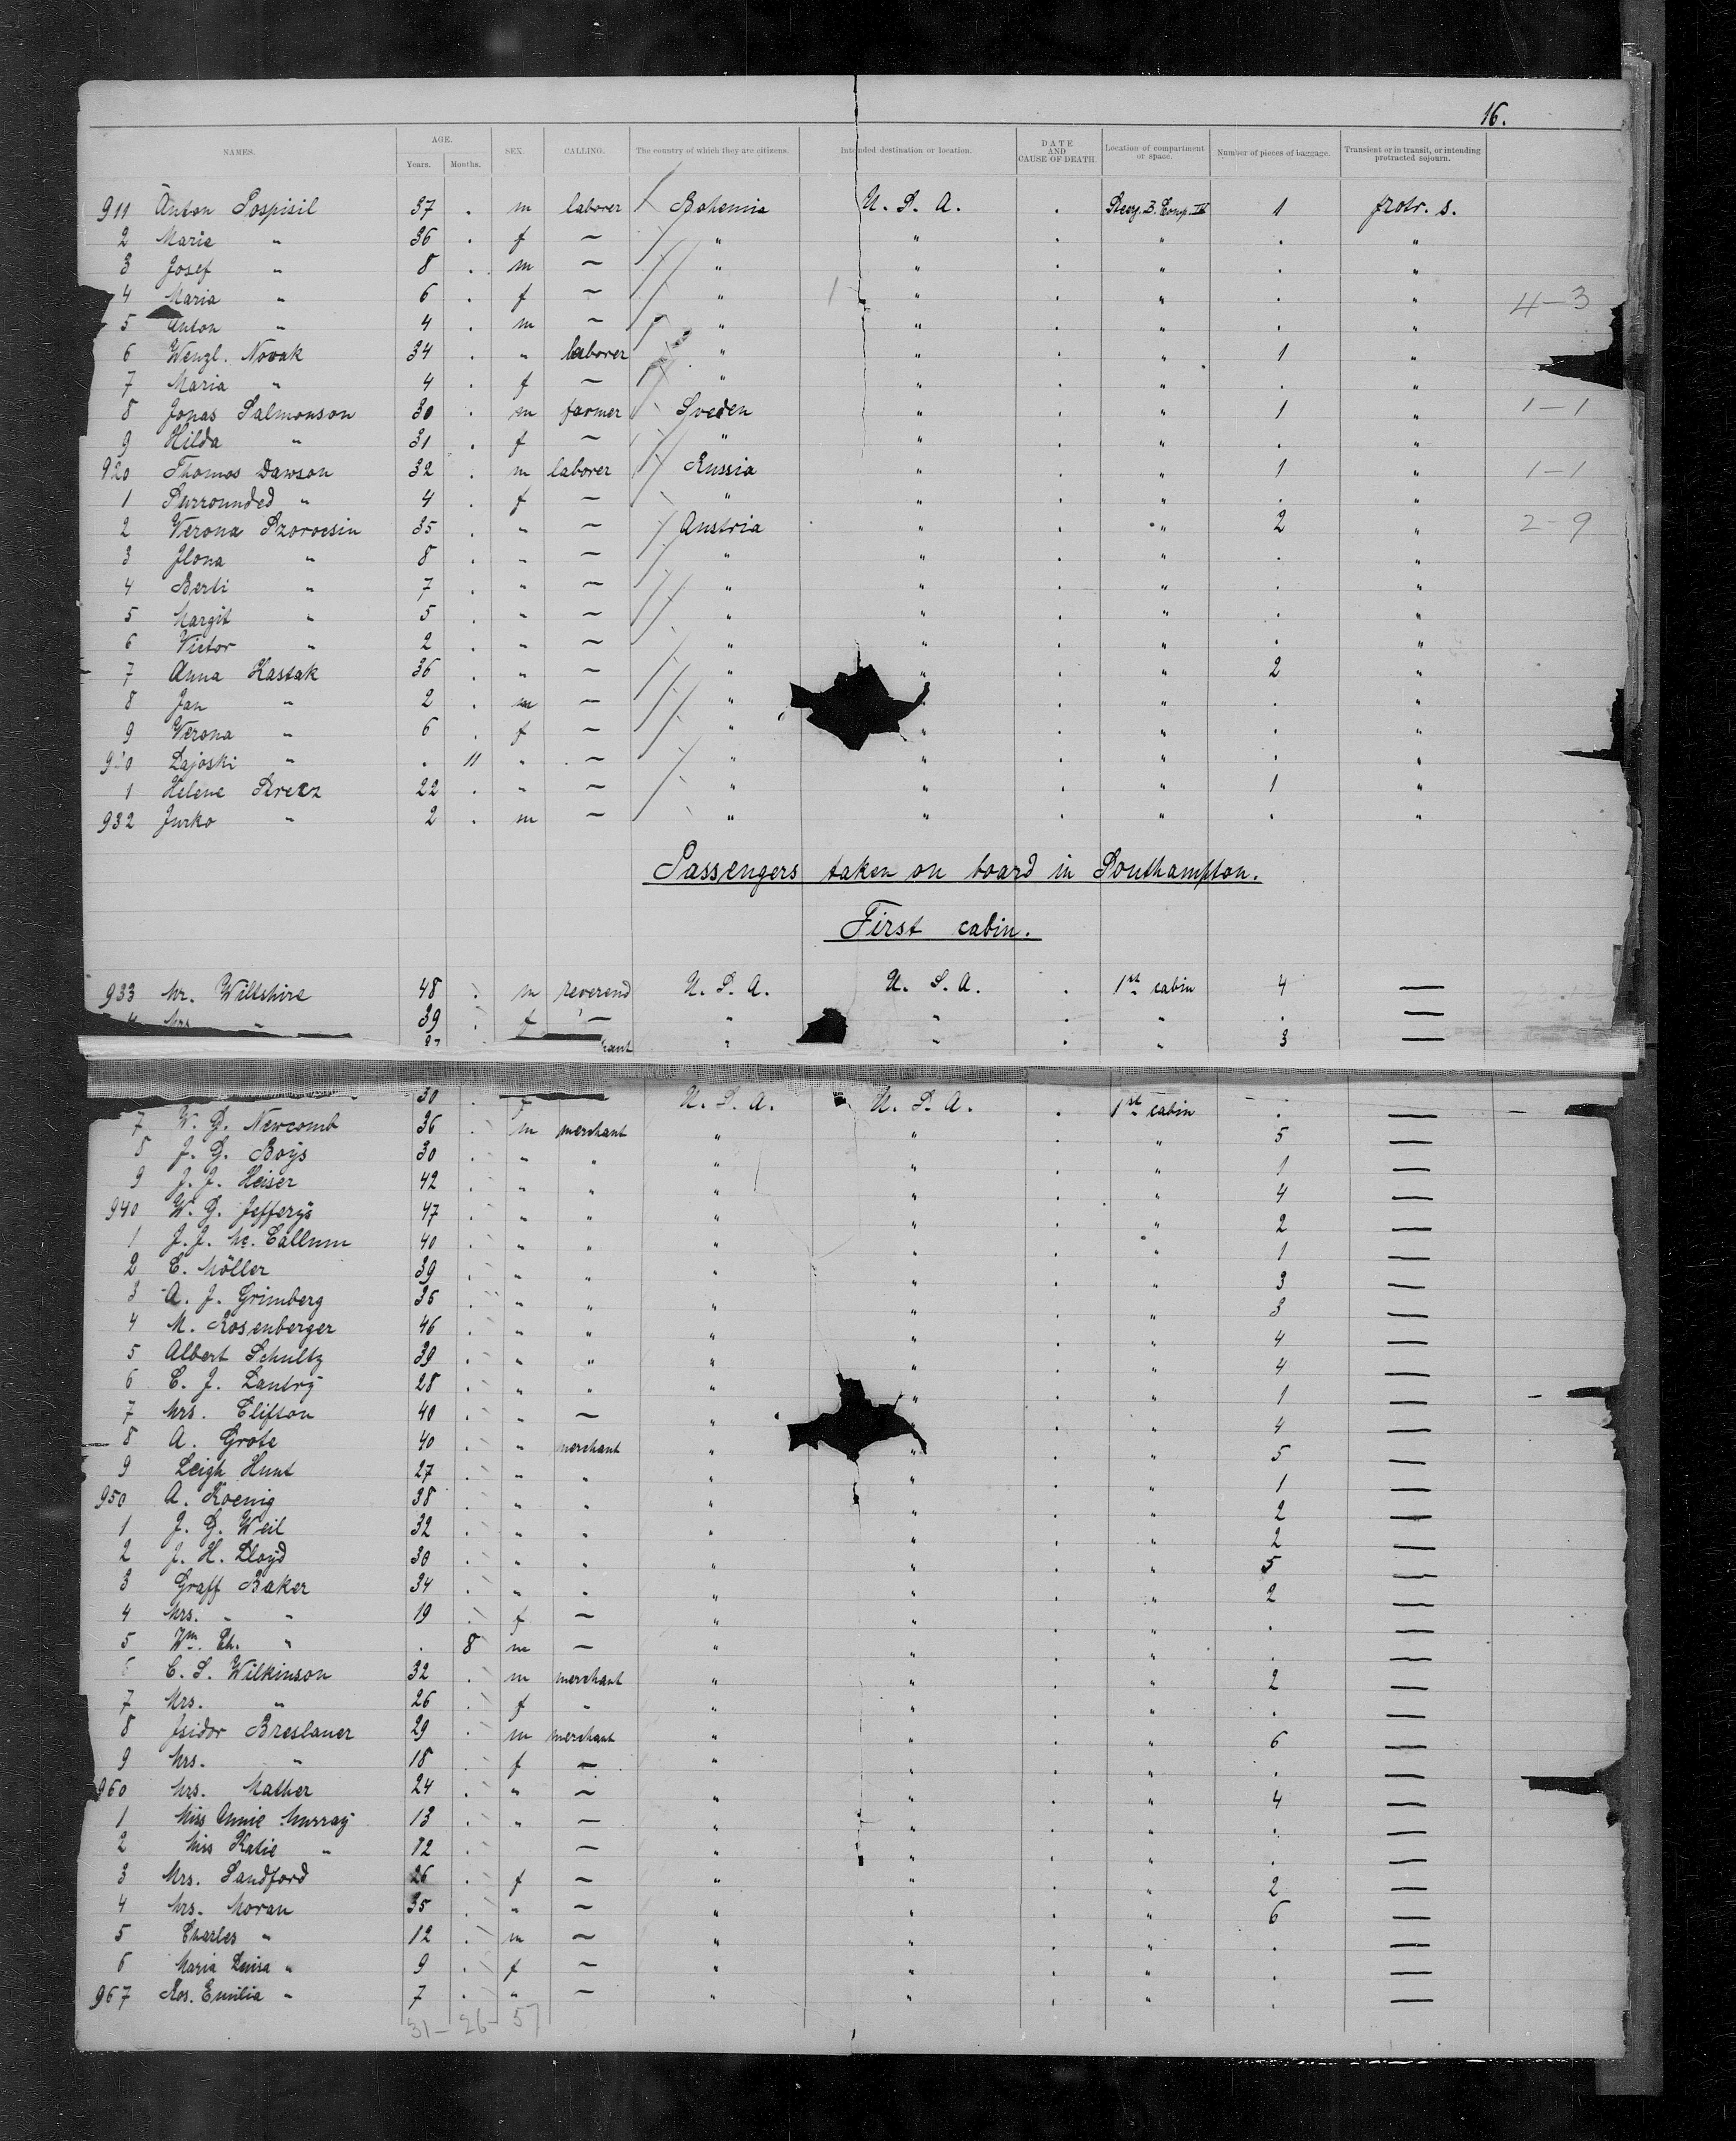 16.
NAMES. AGE. Years. Months. SEX. CALLING. The country of which they are citizens. Intended destination or location. DATE AND CAUSE OF DEATH. Location of compartment or space. Number of pieces of baggage. Transient or in transit, or intending protracted sojourn.
911 Anton Pospisil 37 . m laborer Bohemia U. S. A. . 1 protr. s.
2 Maria " 36 . f — " " . " . "
3 Josef " 8 . m — " " . " . "
4 Maria " 6 . f — " " . " . " 4-3
5 Anton " 4 . m — " " . " . "
6 Wenzl. Novak 34 . " laborer " " . " 1 "
7 Maria " 4 . f — " " . " . "
8 Jonas Salmonson 30 . m farmer Sveden " . " 1 " 1-1
9 Hilda " 31 . f — " " . " . "
920 Thomas Dawson 32 . m laborer Russia " . " 1 " 1-1
1 Surrounded " 4 . f — " " . " . "
2 Verona 35 . " — Austria " . " 2 " 2-9
3 Ilona " 8 . " — " " . " . "
4 Berti " 7 . " — " " . " . "
5 Margit " 5 . " — " " . " . "
6 Victor " 2 . " — " " . " . "
7 Anna Hastak 36 . " — " " . " 2 "
8 Jan " 2 . m — " . " . "
9 Verona " 6 . f — " " . " . "
Lajoski " . 11 " — " " . " . "
1 Helene 22 . " — " " . " 1 "
932 Jurko " 2 . m — " " . " . "
Passengers taken on board in Southampton.
First cabin.
933 Mr. Wiltshire 48 . m reverend U. S. A. U. S. A. . 1st cabin 4 —
4 Mrs " 39 . f — " " . " . —
" " . " 3 —
30 . f U. S. A. U. S. A. . 1st cabin . —
7 W. G. Newcomb 36 . m merchant " " . " 5 —
8 J. G. Boys 30 . " " " " . " 1 —
9 J. J. Heiser 42 . " " " " . " 4 —
940 W. G. Jefferys 47 . " " " " . " 2 —
1 J. J. Mc. Callum 40 . " " " " . " 1 —
2 C. Möller 39 . " " " " . " 3 —
3 A. J. Grimberg 35 . " " " " . " 3 —
4 M. Rosenberger 46 . " " " " . " 4 —
5 Albert Schultz 39 . " " " " . " 4 —
6 C. J. Lantry 28 . " " " " . " 1 —
7 Mrs. Clifton 40 . " — " . " 4 —
8 A. Grote 40 . " merchant " " . " 5 —
9 Leigh Hunt 27 . " " " " . " 1 —
950 A. Koenig 38 . " " " " . " 2 —
1 J. G. Weil 32 . " " " " . " 2 —
2 J. H. Lloyd 30 . " " " " . " 5 —
3 Graff Baker 34 . " " " " . " 2 —
4 Mrs. " " 19 . f — " " . " . —
5 Wm. " . 8 m — " " . " . —
6 C. S. Wilkinson 32 . m merchant " " . " 2 —
7 Mrs. " 26 . f " " " . " . —
8 Isidor Breslauer 29 . m merchant " " . " 6 —
9 Mrs. " 18 . f — " " . " . —
960 Mrs. Mather 24 . " — " " . " 4 —
1 Miss Annie Murray 13 . " — " " . " . —
2 Miss Katie " 12 — " " . " . —
3 Mrs. Sandford 26 . f — " " . " 2 —
4 Mrs. Moran 35 . " — " " . " 6 —
5 Charles " 12 . m — " " . " . —
6 Maria Luisa " 9 . f — " " . " . —
967 Ros. Emilia " 7 . " — " " . " . —
31- 26- 57